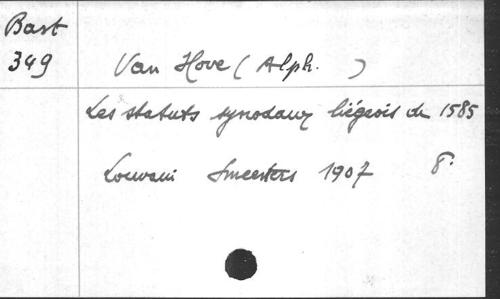 Bast
349
Van Hove (Alph. )
Les statuts synodaux liégeois de 1585
Louvain Smeesters 1907 8°